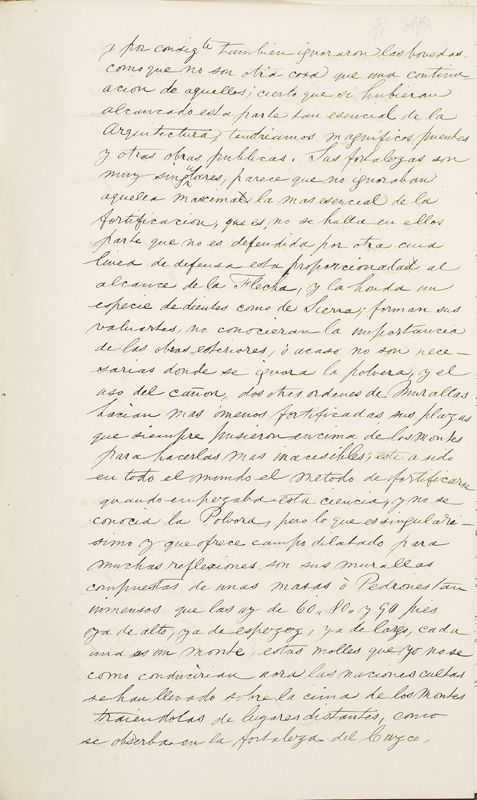 91
y por consigte tambien ignoraron las bovedas
como que no son otra cosa que una continu
acion de aquellos; cierto que si hubieran
alcanzado esta parte tan esencial de la
Arquitectura, tendriamos magnificos puentes
y otras obras publicas. Sus fortalezas son
muy singulares, parece que no ignoraban
aquella maxima la mas esencial de la
fortificacion, que es, no se halla en ellos
parte que no es defendida por otra cuia
linea de defensa esta proporcionada al
alcance de la Flecha, y la honda un
especie de dientes como de Sierra; forman sus
valuartes, no conocieran la importancia
de las obras esteriores, ó acaso no son nece-
sarias donde se ignora la polvora, y el
uso del cañon, dos otres ordenes de Murallas
hacian mas ómenos fortificadas sus plazas
que siempre pusieron encima de los Montes
para hacerlas mas inacesibles; este a sido
en todo el mundo el metodo de fortificarse
quando empezaba esta ciencia, y no se
conocia la Polvora, pero lo que es singulari-
simo y que ofrece campo dilatado para
muchas reflexiones son sus murallas
compuestas de unas masas ò Pedrones tan
inmensos que las ay de 60.. 80.. y 90 pies
ya de alto, ya de espezor, ya de largo, cada
una es un monte, estas molles que yo no se
como conducirian aora las naciones cultas
se han llevado sobre la cima de los Montes
traiendolas de lugares distantes, como
se obserba en la fortaleza del Cuzco.